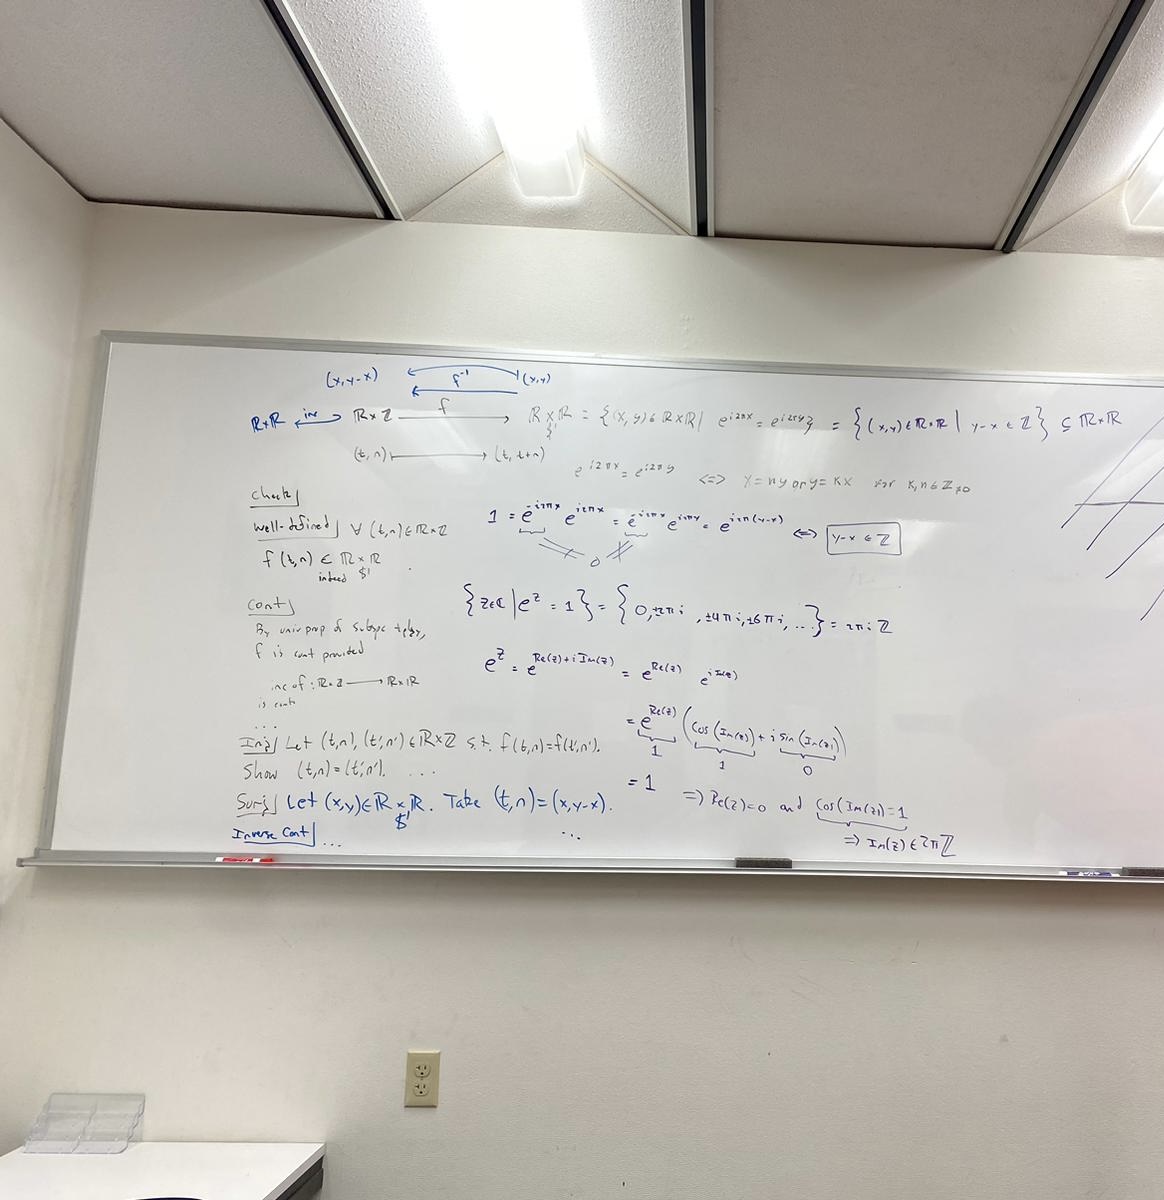 (x, y-x) f⁻¹ (x,y)
ℝ×ℝ inc ℝ×ℤ f ℝ×_{S¹}ℝ = {(x,y)∈ℝ×ℝ | e^{i2πx} = e^{i2πy}} = {(x,y)∈ℝ×ℝ | y-x∈ℤ} ⊆ ℝ×ℝ
(t,n) ⟼ (t, t+n)
e^{i2πx} = e^{i2πy} <=> x = ny or y = kx for k,n∈ℤ≠0
Check
well-defined ∀ (t,n)∈ℝ×ℤ
f(t,n) ∈ ℝ×_{S¹}ℝ
indeed
1 = e^{-i2πx} e^{i2πx} = e^{-i2πx} e^{i2πy} = e^{i2π(y-x)} <=> y-x ∈ ℤ
0
Cont
By univ prop of subspc
f is cont provided
inc∘f : ℝ×ℤ ⟶ ℝ×ℝ
is cont
...
{z∈ℂ | e^z = 1} = {0, ±2πi, ±4πi, ±6πi, ...} = 2πiℤ
e^z = e^{Re(z)+i Im(z)} = e^{Re(z)} e^{i Im(z)}
= e^{Re(z)} (cos(Im(z)) + i sin(Im(z)))
1 1 0
= 1 => Re(z)=0 and cos(Im(z))=1
=> Im(z) ∈ 2πℤ
Inj Let (t,n), (t',n') ∈ ℝ×ℤ s.t. f(t,n)=f(t',n').
Show (t,n)=(t',n'). ...
Surj Let (x,y)∈ℝ×_{S¹}ℝ. Take (t,n)=(x,y-x).
...
Inverse Cont ...